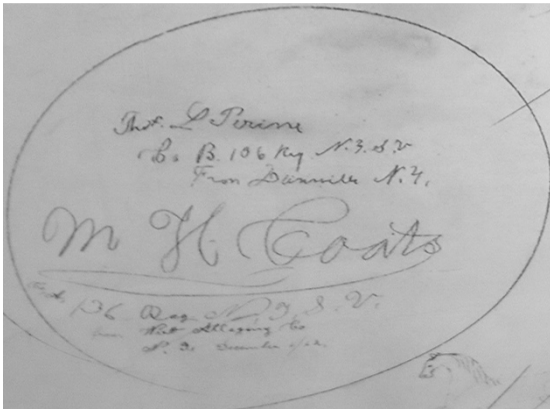 Thos. L Perine
Co B. 106 Reg N.Y.S.V
From Dansville N.Y.
M H Coats
136 Reg N.Y S.V.
from West Allegany Co
N. Y.